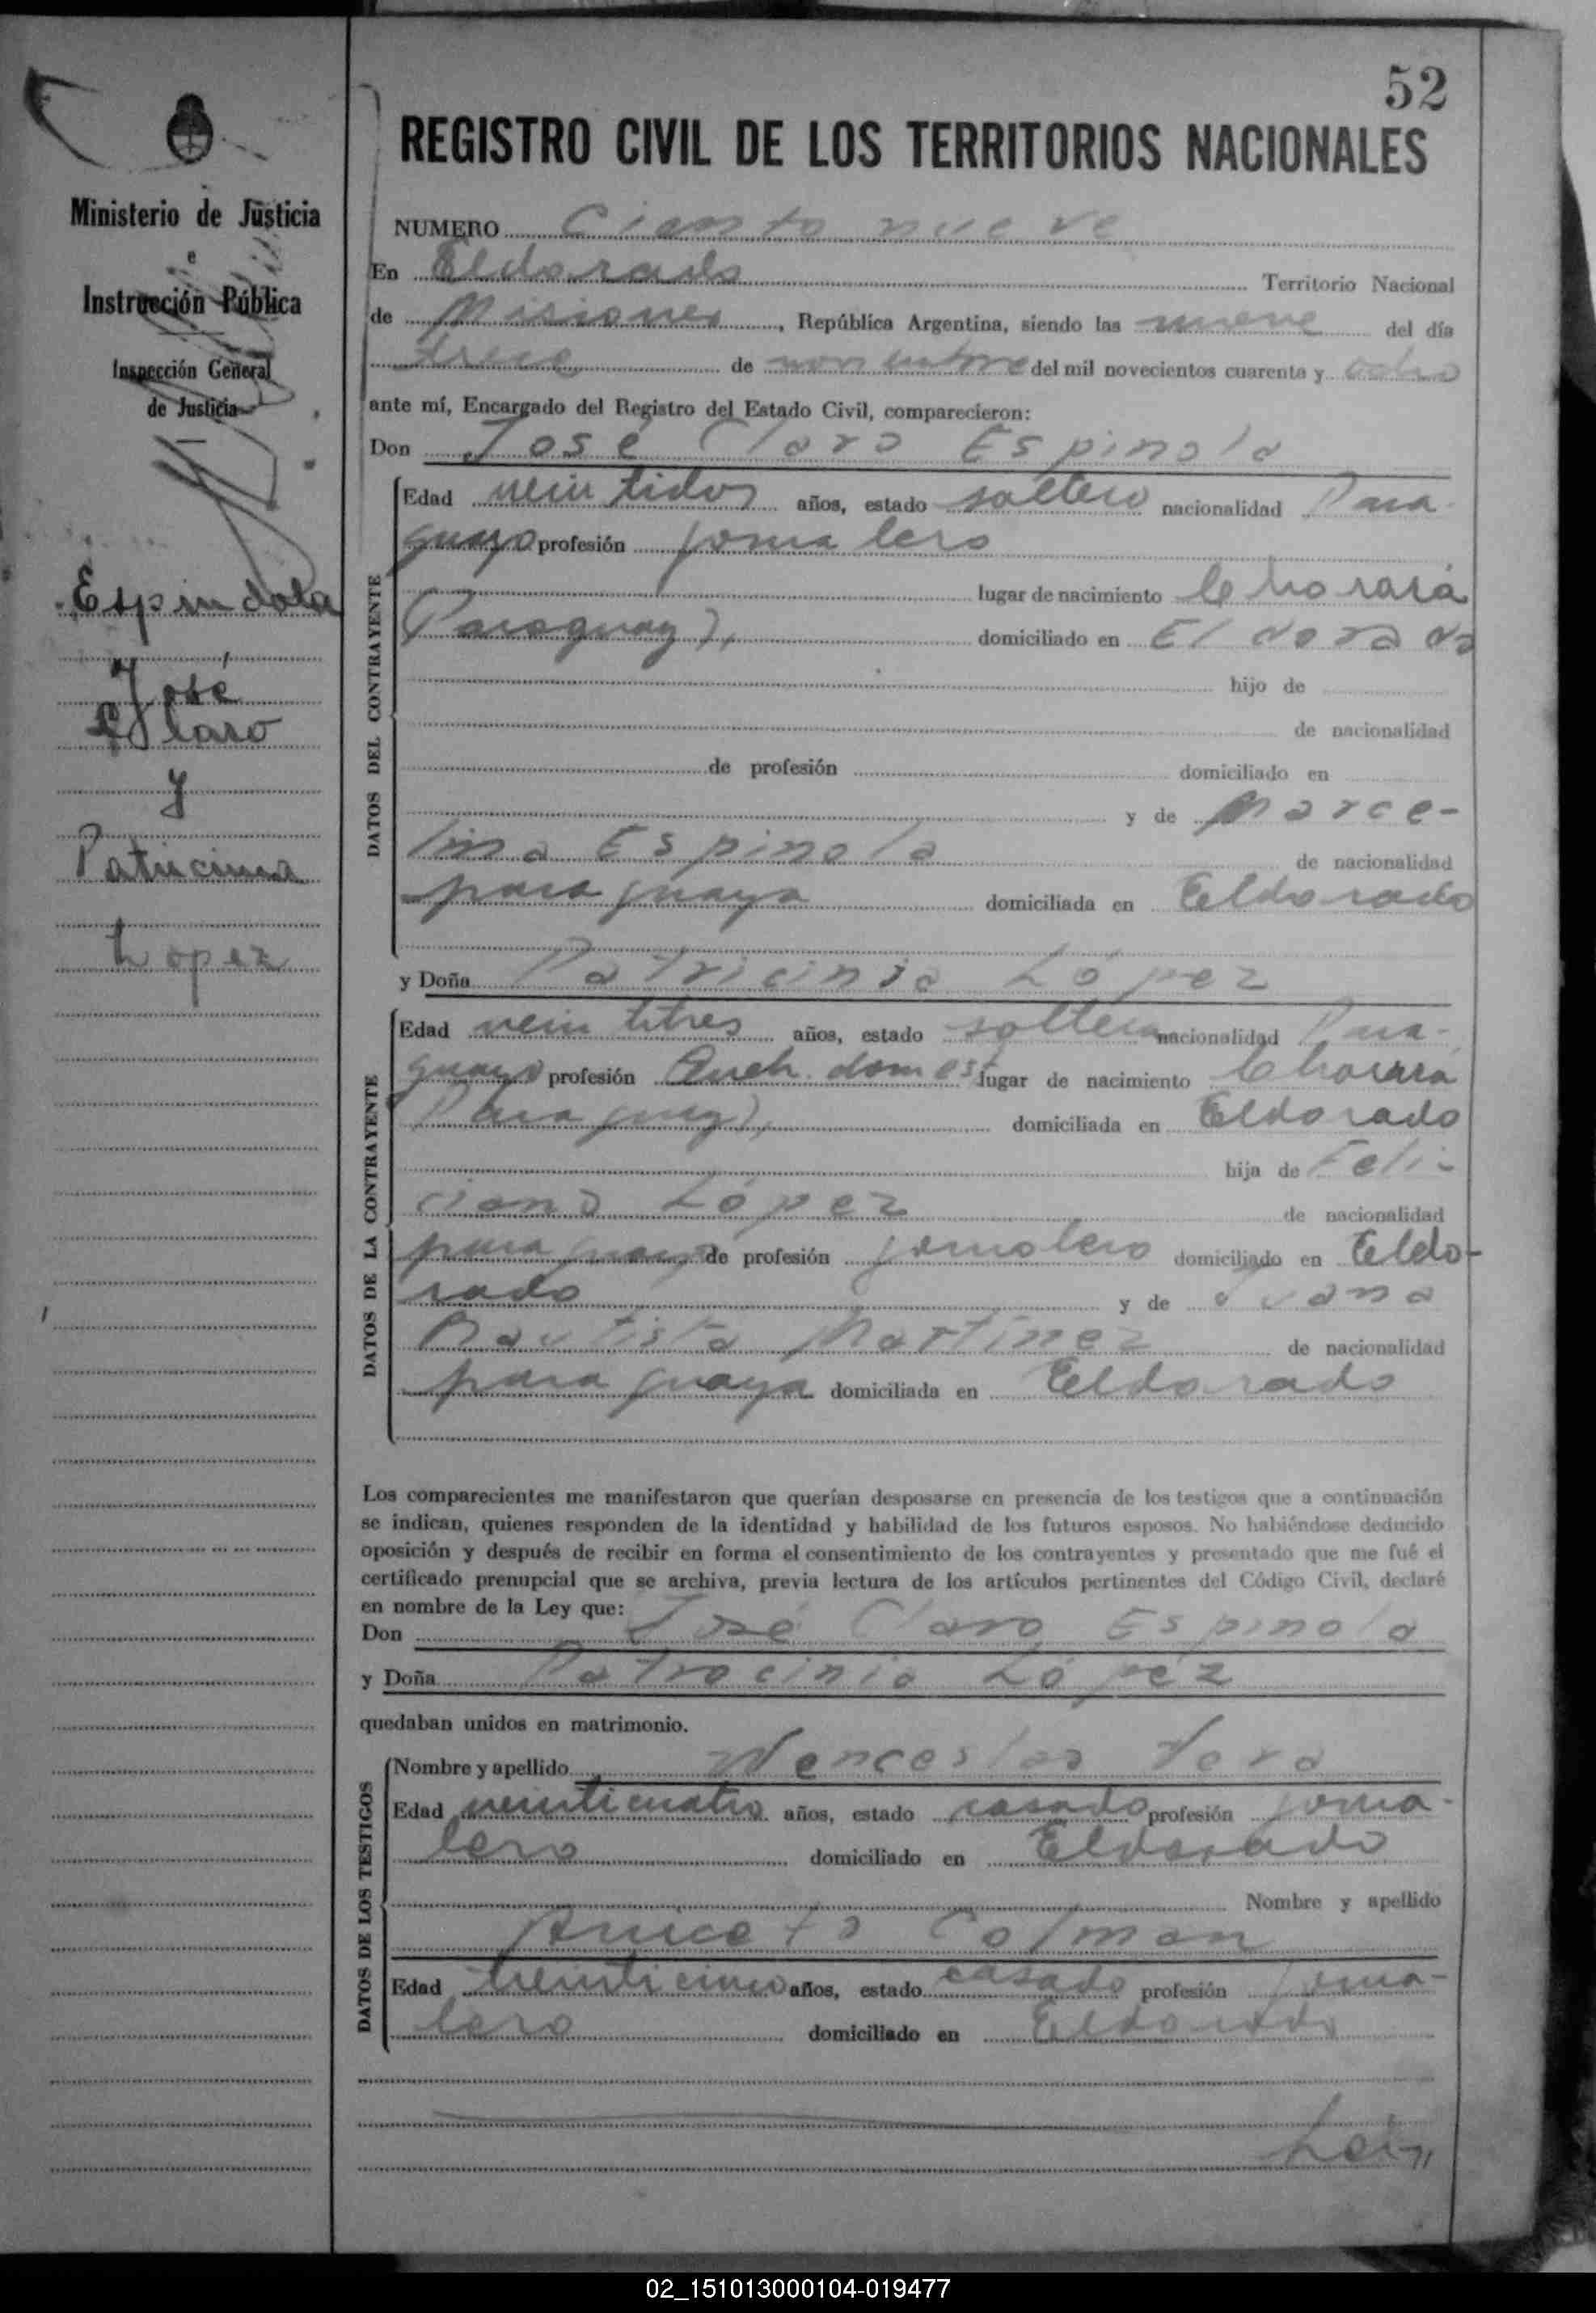 52
REGISTRO CIVIL DE LOS TERRITORIOS NACIONALES
Ministerio de Justicia
e
Instrucción Pública
Inspección General
de Justicia
Espindola
José
Claro
y
Patricinia
Lopez
NUMERO Ciento nueve
En Eldorado Territorio Nacional
de Misiones, República Argentina, siendo las nueve del día
trece de noviembre del mil novecientos cuarenta y ocho
ante mí, Encargado del Registro del Estado Civil, comparecieron:
Don José Claro Espinola
Edad veintidos años, estado soltero nacionalidad Para-
guayo profesión jornalero
lugar de nacimiento
(Paraguay), domiciliado en Eldorado
hijo de
de nacionalidad
de profesión domiciliado en
y de Marce-
lina Espinola de nacionalidad
paraguaya domiciliada en Eldorado
y Doña Patricinia López
Edad veintitres años, estado soltera nacionalidad Para-
guaya profesión Queh. domest lugar de nacimiento
Paraguay), domiciliada en Eldorado
hija de Feli-
ciano López de nacionalidad
paraguayo de profesión jornalero domiciliado en Eldo-
rado y de Juana
Bautista Martínez de nacionalidad
paraguaya domiciliada en Eldorado
DATOS DEL CONTRAYENTE
DATOS DE LA CONTRAYENTE
Los comparecientes me manifestaron que querían desposarse en presencia de los testigos que a continuación
se indican, quienes responden de la identidad y habilidad de los futuros esposos. No habiéndose deducido
oposición y después de recibir en forma el consentimiento de los contrayentes y presentado que me fué el
certificado prenupcial que se archiva, previa lectura de los artículos pertinentes del Código Civil, declaré
en nombre de la Ley que:
Don José Claro Espinola
y Doña Patrocinia López
quedaban unidos en matrimonio.
DATOS DE LOS TESTIGOS
Nombre y apellido Wenceslao Vera
Edad veinticuatro años, estado casado profesión jorna-
lero domiciliado en Eldorado
Nombre y apellido
Aniceto Colman
Edad treinticinco años, estado casado profesión jorna-
lero domiciliado en Eldorado
02_151013000104-019477